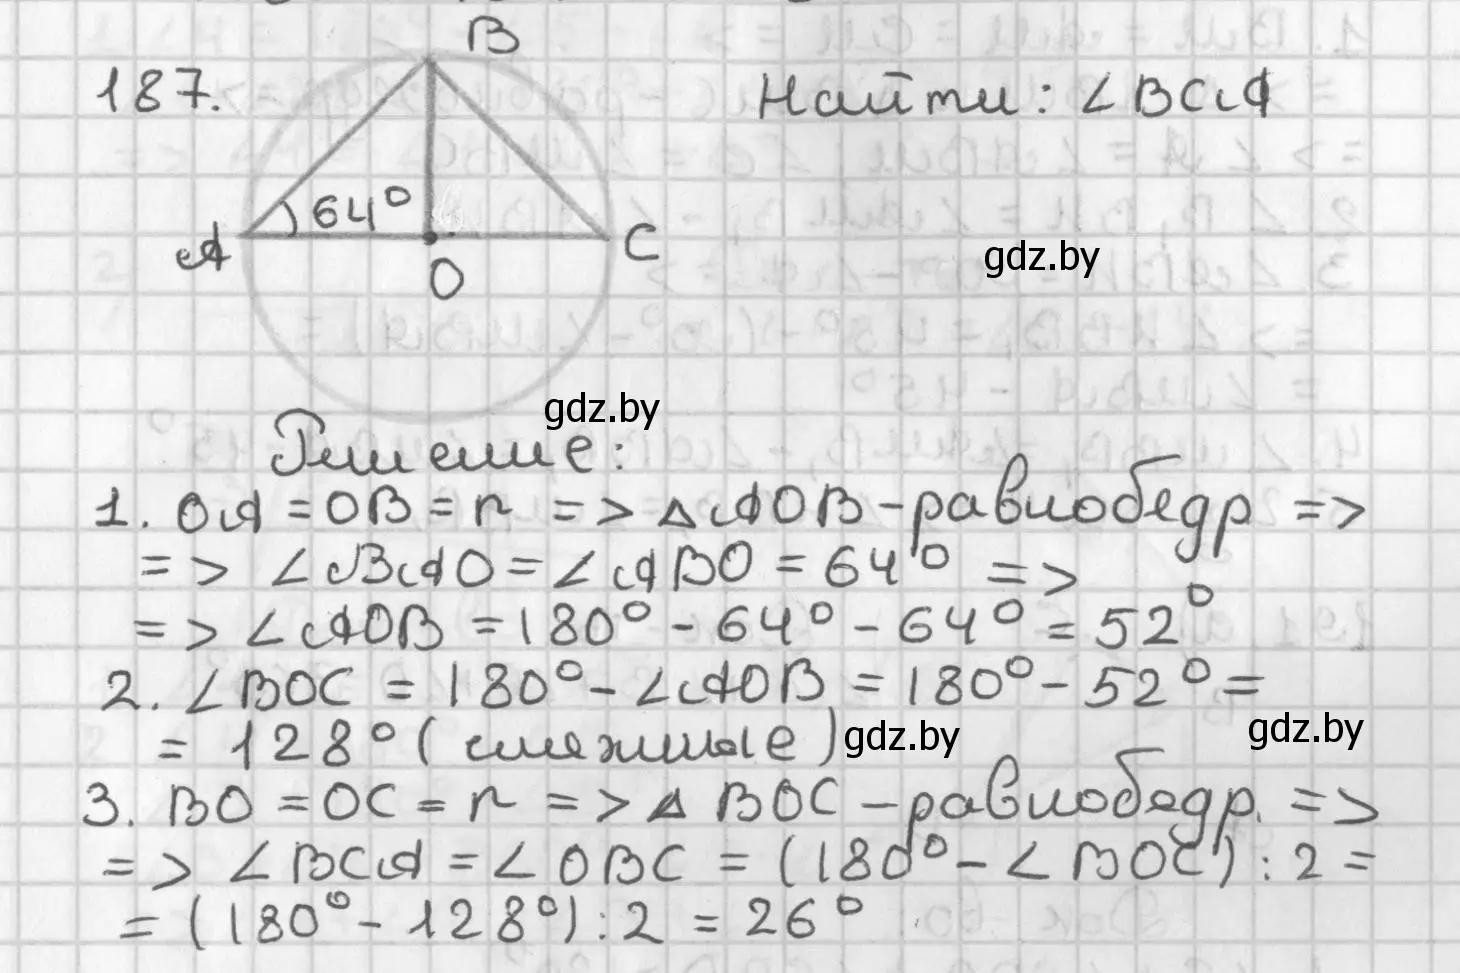 187.
B
Найти: ∠BCA
64°
A
O
C
gdz.by
gdz.by
Решение:
1. OA = OB = r => △AOB - равнобедр =>
=> ∠BAO = ∠ABO = 64° =>
=> ∠AOB = 180° - 64° - 64° = 52°
2. ∠BOC = 180° - ∠AOB = 180° - 52° =
= 128° (смежные)
gdz.by
gdz.by
3. BO = OC = r => △ BOC - равнобедр. =>
=> ∠BCA = ∠OBC = (180° - ∠BOC) : 2 =
= (180° - 128°) : 2 = 26°